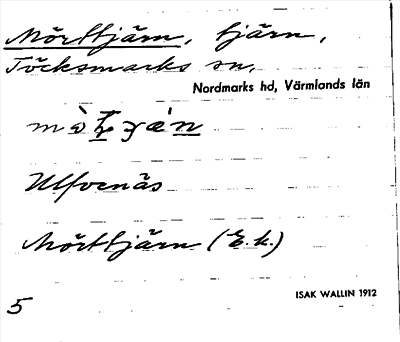 Mörttjärn, tjärn,
Töcksmarks sn,
Nordmarks hd, Värmlands län
Ulfvenäs
Mörttjärn (E.k.)
ISAK WALLIN 1912
5